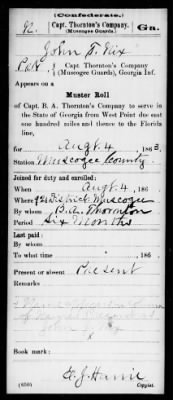 (Confederate.)
92. Capt. Thornton's Company Ga.
(Muscogee Guards.)
John S. Nix
Pvt Capt. Thornton's Company
(Muscogee Guards), Georgia Inf.
Appears on a
Muster Roll
of Capt. B. A. Thornton's Company to serve in
the State of Georgia from West Point due east
one hundred miles and thence to the Florida
line,
for Augt. 4, 1863.
Station Muscogee County.
Joined for duty and enrolled:
When Augt. 4, 186
Where District Muscogee
By whom B. A. Thornton
Period Six Months
Last paid:
By whom
To what time , 186 .
Present or absent Present
Remarks
Book mark:
Copyist.